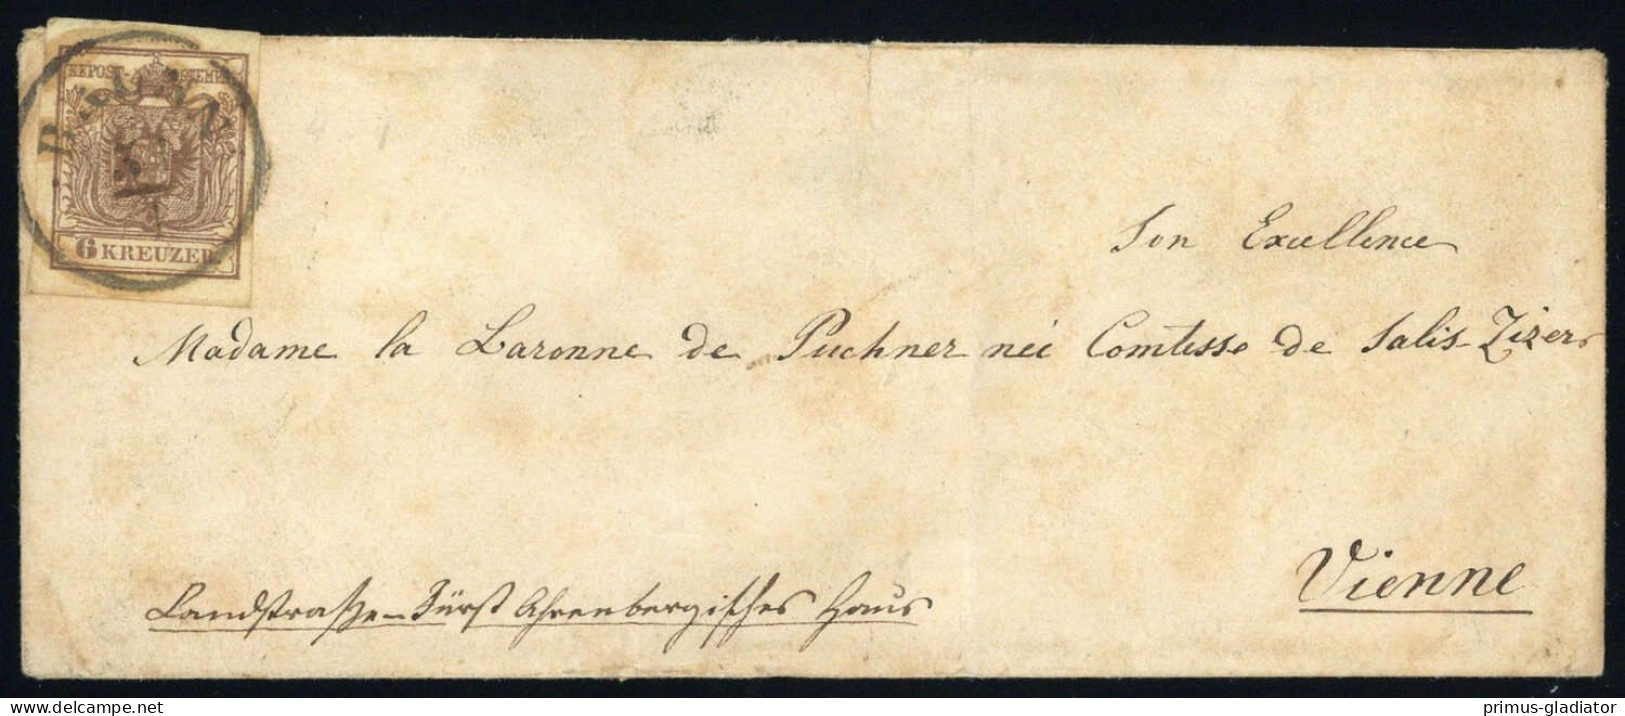 KKPOST-STEMPEL
BRÜNN
6 KREUZER
Son Excellence
Madame la Baronne de Puchner née Comtesse de Salis-Zizers
Vienne
Landstraße-Fürst Ahrenbergisches Haus
primus-gladiator